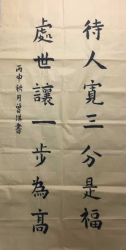 待人寬三分是福
處世讓一步為高
丙申秋月曾洪書